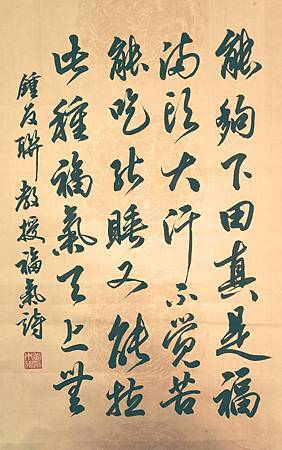 能夠下田真是福
滿頭大汗不覺苦
能吃能睡又能拉
此種福氣天上無
鍾友聯教授福氣詩